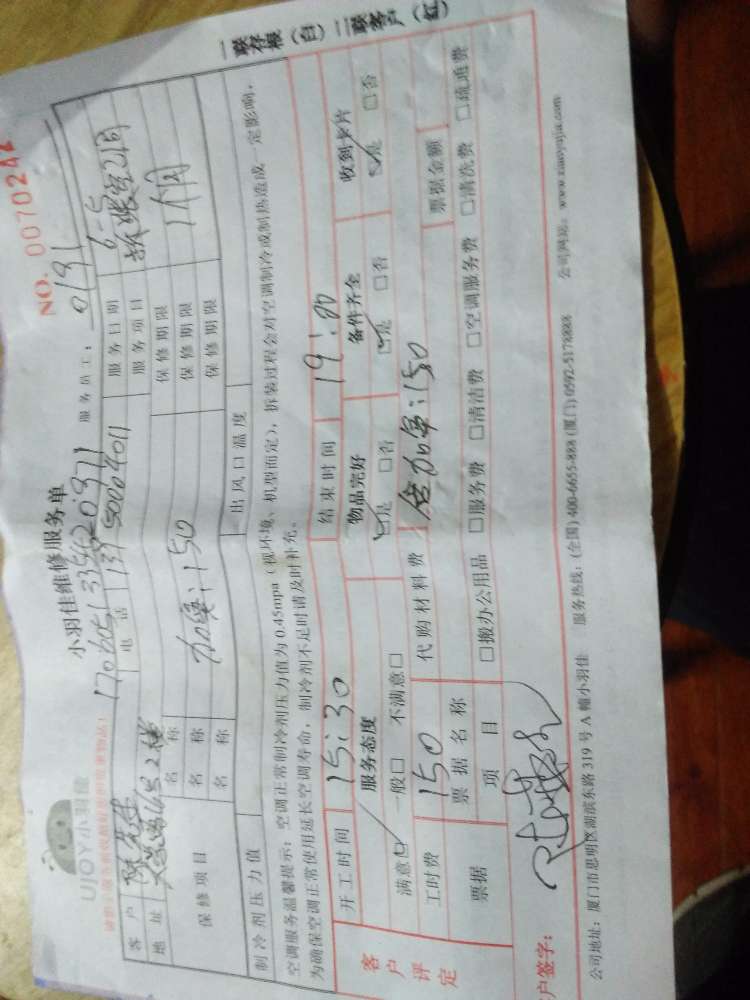 一联存根（白）二联客户（红）
NO. 0070242
UJOY小羽佳
小羽佳维修服务单
服务员工：0191
客户 陈先生 电话 服务日期 6-5
地址 服务项目
保修项目 名称 加氟：150 保修期限 1个月
名称 保修期限
名称 保修期限
制冷剂压力值 出风口温度
空调服务温馨提示：空调正常制冷剂压力值为0.45mpa（视环境、机型而定），拆装过程会对空调制冷或制热造成一定影响，
为确保空调正常使用延长空调寿命，制冷剂不足时请及时补充。
客户评定
开工时间 15:30 结束时间 19:00
服务态度 物品完好 备件齐全 收到卡片
满意□ 一般□ 不满意□ □是 □否 □是 □否 □是 □否
工时费 150 代购材料费 含加氟：150 票据金额
票据 票据名称
项目 □搬办公用品 □服务费 □清洁费 □空调服务费 □清洗费 □疏通费
户签字：
公司地址：厦门市思明区湖滨东路319号A幢小羽佳 服务热线：(全国) 400-6655-888 (厦门) 0592-5178888 公司网站：www.xiaoyujia.com